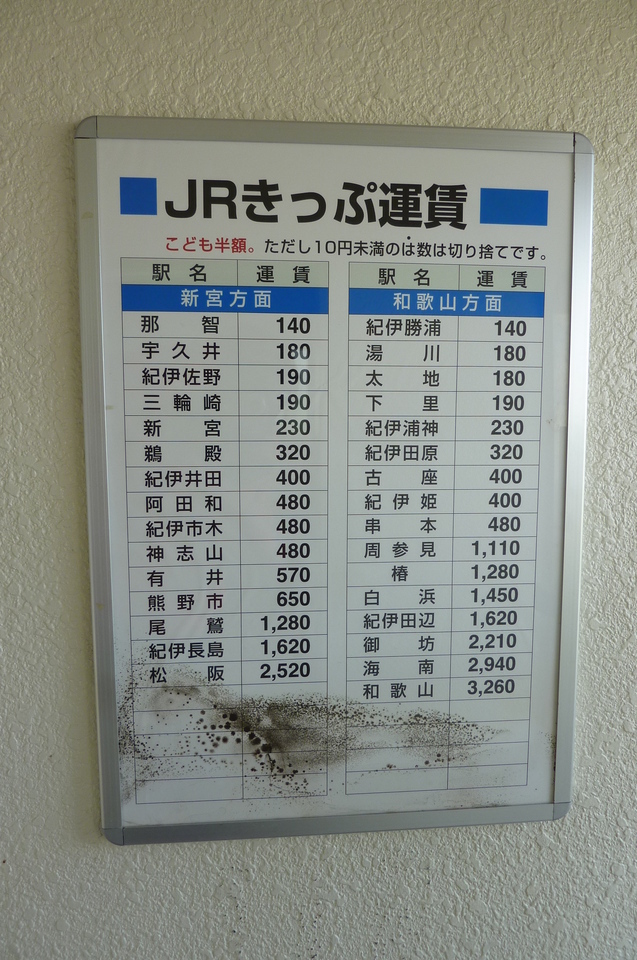 JRきっぷ運賃
こども半額。ただし10円未満のは数は切り捨てです。
駅名 運賃
新宮方面
那智 140
宇久井 180
紀伊佐野 190
三輪崎 190
新宮 230
鵜殿 320
紀伊井田 400
阿田和 480
紀伊市木 480
神志山 480
有井 570
熊野市 650
尾鷲 1,280
紀伊長島 1,620
松阪 2,520
駅名 運賃
和歌山方面
紀伊勝浦 140
湯川 180
太地 180
下里 190
紀伊浦神 230
紀伊田原 320
古座 400
紀伊姫 400
串本 480
周参見 1,110
椿 1,280
白浜 1,450
紀伊田辺 1,620
御坊 2,210
海南 2,940
和歌山 3,260